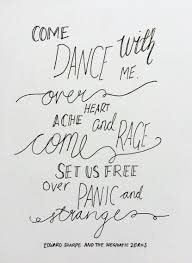 COME
DANCE with
ME.
over
HEART
ACHE and RAGE
come
SET US FREE
over PANIC and
stranges
EDWARD SHARPE AND THE MAGNETIC ZEROS